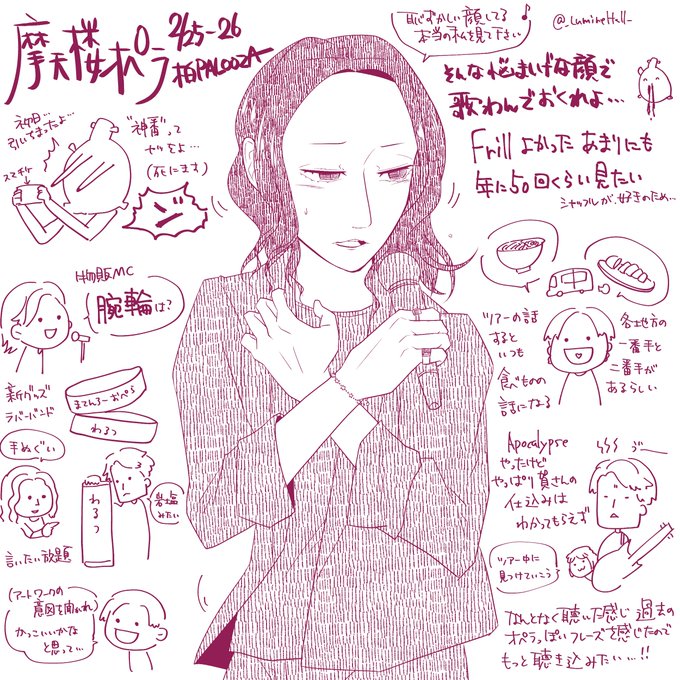 摩天楼オペラ
2/25-26
柏PALOOZA
恥ずかしい顔してる
本当の私を見て下さい
@_LumineHall_
そんな悩ましげな顔で
歌わんでおくれよ…
Frillよかった あまりにも
年に50回くらい見たい
シャッフルが好きのため…
初日…
引いてまったよ…
スマチケ
"神番"って
やつをよ…
(死にます)
物販MC
腕輪は?
新グッズ
ラバーバンド
まてんろーおぺら
わるつ
手ぬぐい
わるつ
岩塩
みたい
言いたい放題
(アートワークの
意図を聞かれ)
かっこいいかな
と思って…
ツアーの話
すると
いつも
食べもの
の
話になる
各地方の
一番手と
二番手が
あるらしい
Apocalypse
やったけど
やっぱり
さんの
仕込みは
わかってもらえず
ツアー中に
見つけていこう
なんとなく聴いた感じ 過去の
オペラっぽいフレーズを感じたので
もっと聴き込みたい…!!